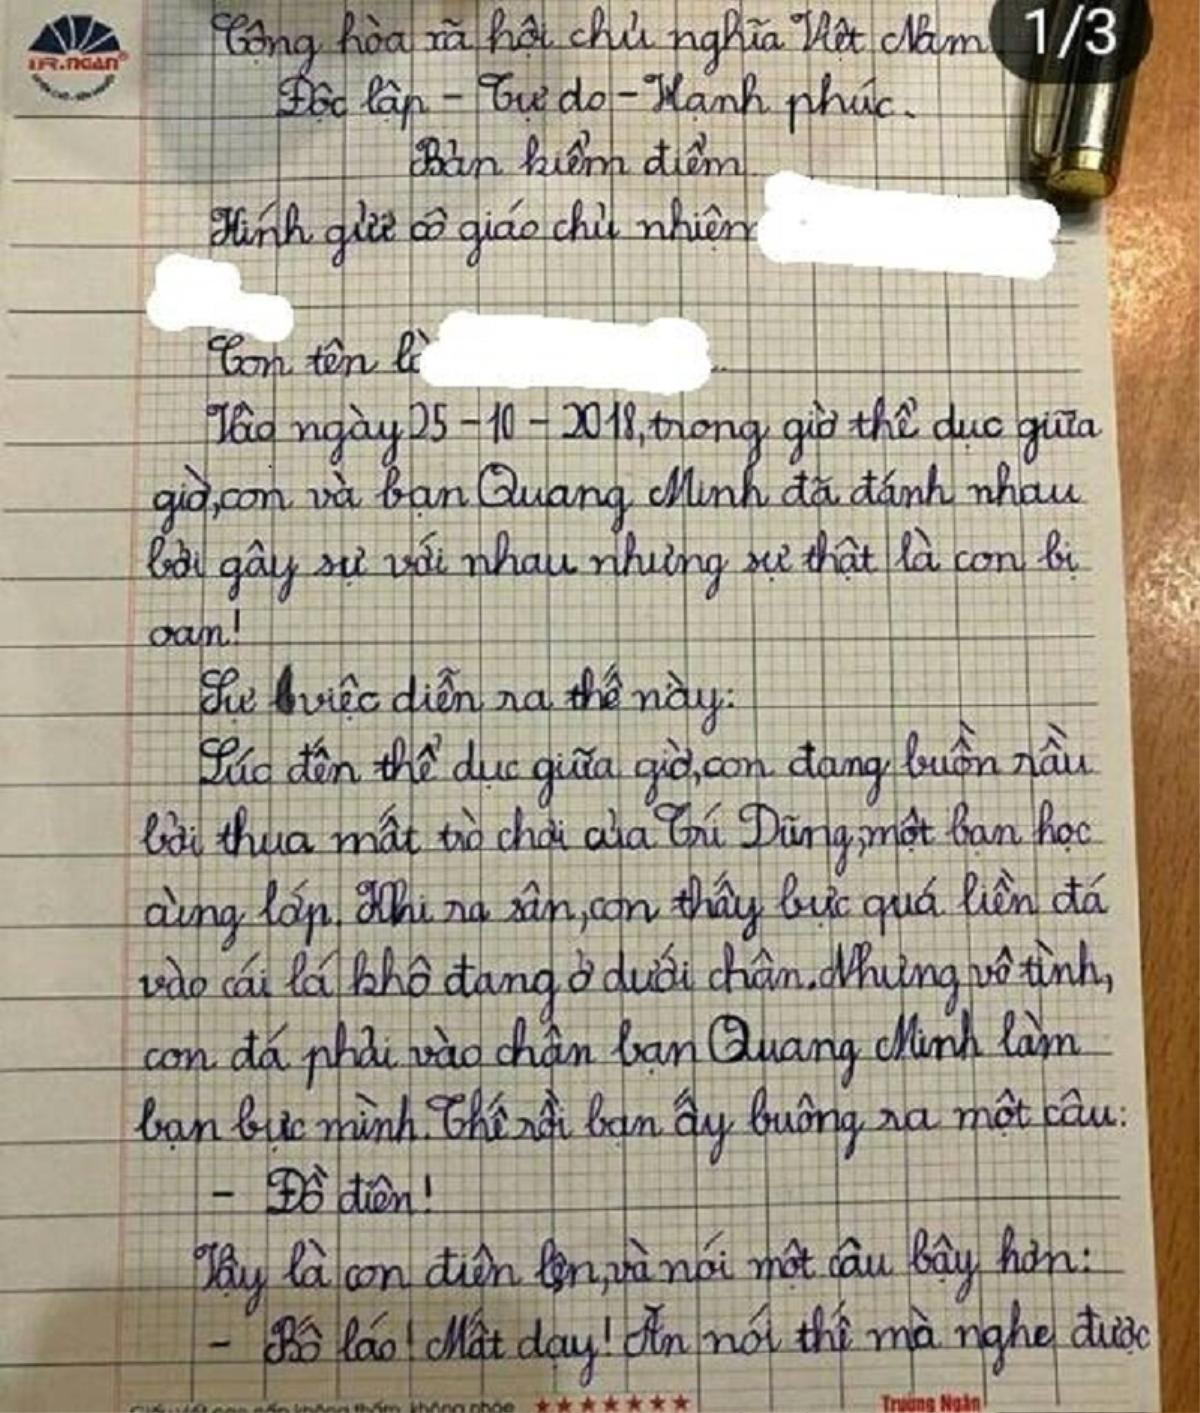 1/3
TR.NGAN
Cộng hòa xã hội chủ nghĩa Việt Nam
Độc lập - Tự do - Hạnh phúc.
Bản kiểm điểm
Kính gửi cô giáo chủ nhiệm
Con tên là
Vào ngày 25-10-2018, trong giờ thể dục giữa
giờ, con và bạn Quang Minh đã đánh nhau
bởi gây sự với nhau nhưng sự thật là con bị
oan!
Sự việc diễn ra thế này:
Lúc đến thể dục giữa giờ, con đang buồn rầu
bởi thua mất trò chơi của Trí Dũng, một bạn học
cùng lớp. Khi ra sân, con thấy bực quá liền đá
vào cái lá khô đang ở dưới chân. Nhưng vô tình,
con đá phải vào chân bạn Quang Minh làm
bạn bực mình. Thế rồi bạn ấy buông ra một câu:
- Đồ điên!
Vậy là con điên lên, và nói một câu bậy hơn:
- Bố láo! Mất dạy! Ăn nói thế mà nghe được
Giấy viết cao cấp không thấm, không nhòe ★★★★★★★ Trường Ngân